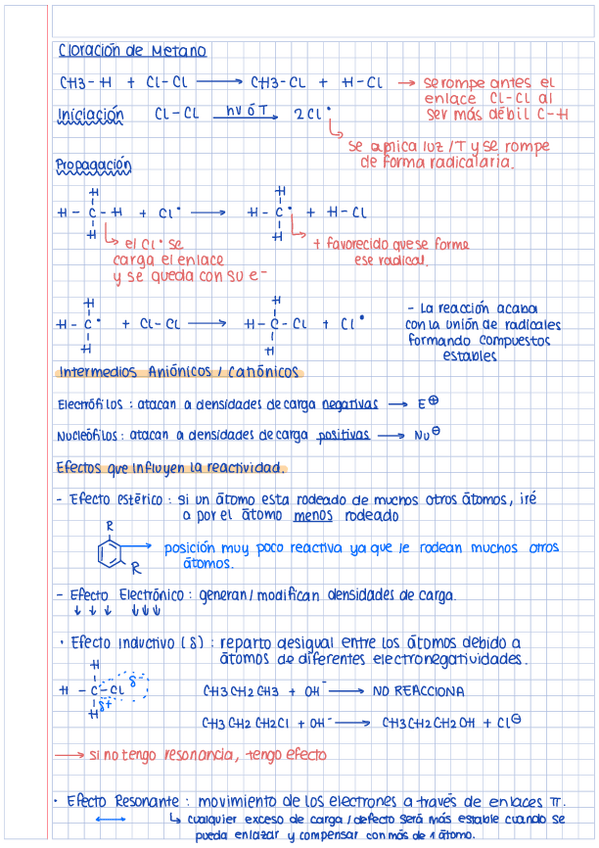 Cloración de Metano
CH3-H + Cl-Cl ⟶ CH3-CL + H-CL → se rompe antes el
enlace Cl-Cl al
ser más débil C-H
Iniciación Cl-Cl hν ó T → 2 Cl•
se aplica luz /T y se rompe
de forma radicalaria.
Propagación
H H
H - C - H + Cl• ⟶ H - C• + H-CL
H H
el Cl• se
carga el enlace
y se queda con su e-
+ favorecido que se forme
ese radical.
H H
H - C• + Cl-CL ⟶ H-C-CL + Cl•
H H
- La reacción acaba
con la unión de radicales
formando compuestos
estables
Intermedios Aniónicos / Catiónicos
Electrófilos : atacan a densidades de carga negativas → E⊕
Nucleófilos : atacan a densidades de carga positivas → Nu⊖
Efectos que influyen la reactividad.
- Efecto estérico : si un átomo esta rodeado de muchos otros átomos, iré
a por el átomo menos rodeado
R
R
posición muy poco reactiva ya que le rodean muchos otros
átomos.
- Efecto Electrónico : generan/modifican densidades de carga.
↓ ↓ ↓ ↓↓↓
· Efecto Inductivo (δ) : reparto desigual entre los átomos debido a
átomos de diferentes electronegatividades.
H
H - C-CL δ-
H δ+
CH3CH2CH3 + OH⁻ ⟶ NO REACCIONA
CH3CH2CH2Cl + OH⁻ ⟶ CH3CH2CH2OH + Cl⊖
⟶ si no tengo resonancia, tengo efecto
· Efecto Resonante : movimiento de los electrones a través de enlaces π.
↔ ↳ cualquier exceso de carga/defecto será más estable cuando se
pueda enlazar y compensar con más de 1 átomo.